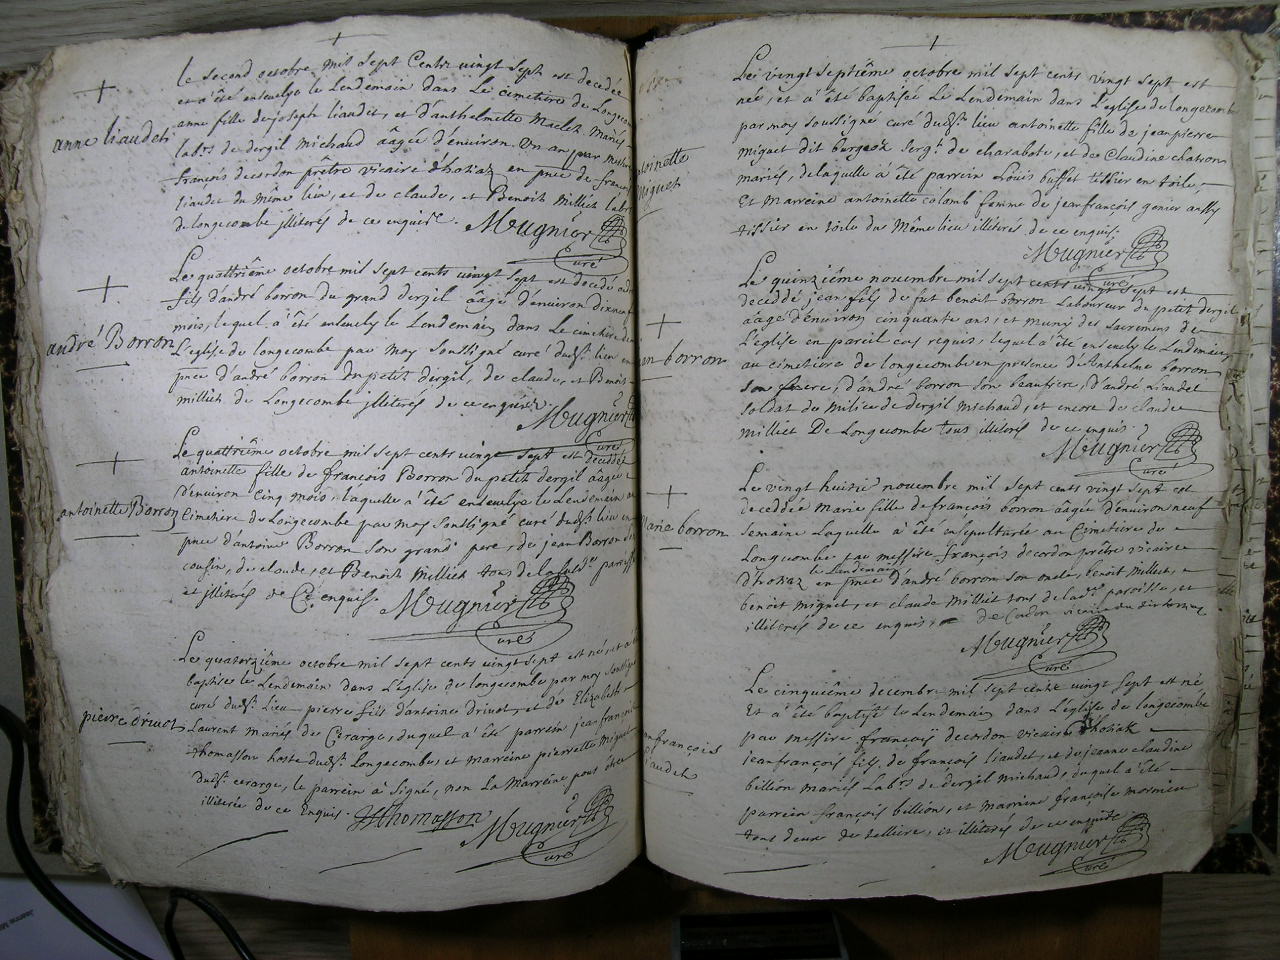 Le second octobre mil sept Cents vingt sept est decedée
et a été ensevelye le Lendemain dans Le cimetiere de Longecom
anne liaudet
anne fille de joseph liaudet, et d'anthelmette Maclet Mariés
lab.rs de dergil michaud aâgée d'environ un an par
françois decordon prêtre vicaire d'hotiaz en pnce de françois
liaudet du même lieu, et de claude, et Benoit Milliet lab.rs
de longecombe jlliterés de ce enquis
Mugnier
Curé
Le quattriême octobre mil sept cents vingt sept est decedé
fils d'andré borron du grand dergil aâgé d'environ dixneuf
mois, lequel à été ensevely le Lendemain dans Le cimetiere de
andré Borron
L'eglise de longecombe par moy soussigné curé dudt. lieu en
pnce d'andré borron du petit dergil, de claude, et Benoit
milliet de Longecombe jlliterés de ce enquis
Mugnier
Curé
Le quattriême octobre mil sept cents vingt sept est decedée
antoinette fille de françois Borron du petit dergil aâgée
d'environ cinq mois, laquelle a été ensevelye le Lendemain au
antoinette Borron
Cimetiere de Longecombe par moy soussigné curé dudt. lieu en
pnce d'antoine Borron son grand pere, de jean Borron
cousin, de claude, et Benoit Milliet tous de
et jlliterés de Ce enquis.
Mugnier
Curé
Le quatorziême octobre mil sept cents vingt sept est né, et a été
baptisé le Lendemain dans L'eglise de longecombe par moy soussigné
curé dudt. Lieu pierre fils d'antoine Drivot, et de Elizabeth
pierre drivot
Laurent mariés de Cerarge, duquel a été parrein jean françois
thomasson hoste dudt. Longecombe, et marreine pierrette Miguet
dudt. cerarge, le parrein a signé, non la Marreine pour être
jlliterée de ce Enquis.
JThomasson Mugnier
Curé
Le vingt septiême octobre mil sept cents vingt sept est
née, et a été baptisée Le Lendemain dans L'eglise de longecombe
par moy soussigné curé dudt. lieu antoinette fille de jean pierre
miguet dit burgeok serg.t de charabote, et de Claudine chation
antoinette
Miguet
mariés, de laquelle a été parrein Louis buffet tissier en toile,
Et Marreine antoinette colomb femme de jean françois gonier
tissier en toile du Même lieu illiterés de ce enquis.
Mugnier
Curé
Le quinziême novembre mil sept cents vingt sept est
decedé jean fils de fut benoit borron Laboureur du petit dergil
aâgé d'environ cinquante ans, et muny des sacremens de
L'eglise en pareil cas requis, lequel a été ensevely le Lendemain
jean borron
au cimetiere de longecombe en presence d'Anthelme borron
son frere, d'andré borron son beaufrere, d'andré Liaudet
soldat de milice de dergil michaud, et encore de claude
milliet De Longecombe tous illiterés de ce enquis
Mugnier
Curé
Le vingt huitie novembre mil sept cents vingt sept est
decedée Marie fille de françois borron aâgée d'environ neuf
semaine Laquelle a été insepulturée au Cimetiere de
Marie borron
Longecombe par messire françois decordon prêtre vicaire
le Lendemain
d'hotiaz en pnce d'andré borron son oncle, benoit milliet,
benoit miguet, et claude Milliet tous de lad.e paroisse, et
illiterés de ce enquis,
Mugnier
Curé
Le cinquiême decembre mil sept cents vingt sept est né
Et a été baptisé le Lendemain dans L'eglise de longecombe
par messire françois decordon vicaire d'hotiaz
jean françois
liaudet
jean françois fils, de françois liaudet, et de jeanne claudine
billion mariés Lab.rs de dergil michaud, duquel a été
parrein françois billion, et marreine françoise mormieu
tous deux de, et illiterés de ce enquis
Mugnier
Curé